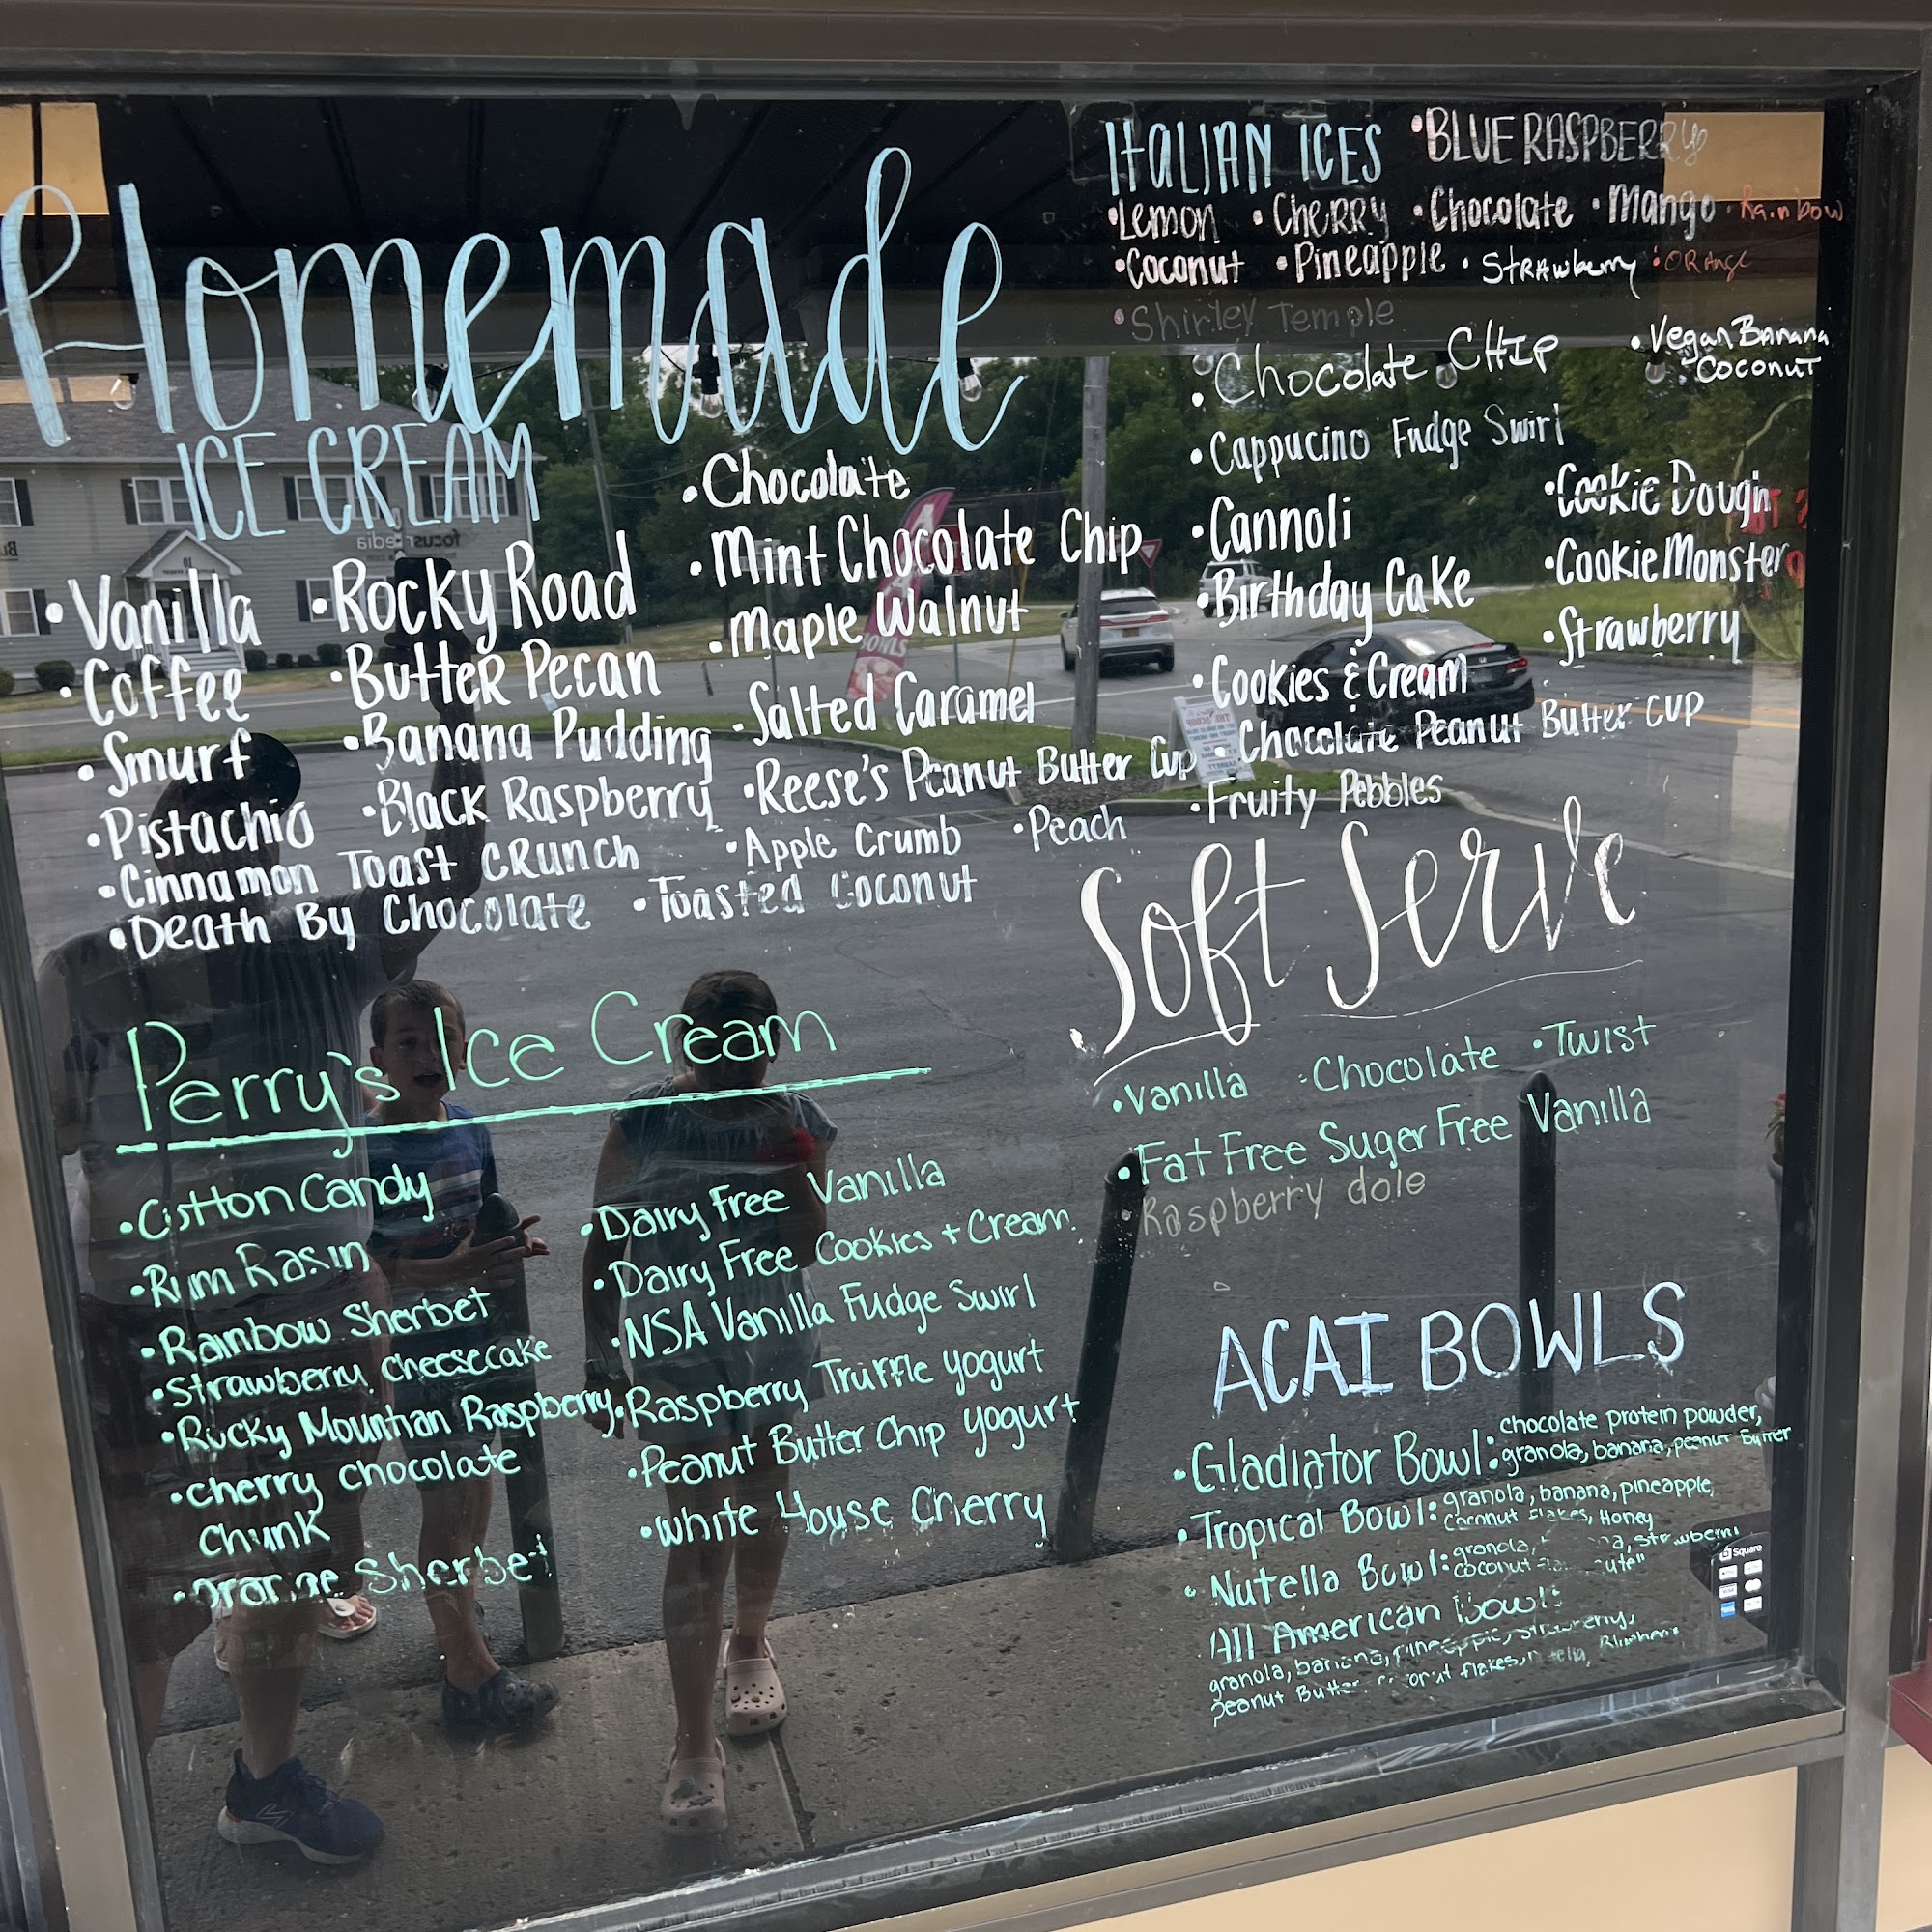 Homemade
ICE CREAM
• Vanilla
• Coffee
• Smurf
• Pistachio
• Cinnamon Toast CRunch
• Death By Chocolate
• Rocky Road
• Butter Pecan
• Banana Pudding
• Black Raspberry
• Chocolate
• Mint Chocolate Chip
• Maple Walnut
• Salted Caramel
• Reese's Peanut Butter Cup
• Apple Crumb
• Peach
• Toasted Coconut
ITALIAN ICES • BLUE RASPBERRY
• Lemon • CHERRY • Chocolate • Mango • Rainbow
• Coconut • Pineapple • STRAwberry • ORange
• Shirley Temple
• Chocolate CHIP
• Cappucino Fudge Swirl
• Cannoli
• Birthday Cake
• Cookies & Cream
• Chocolate Peanut Butter Cup
• Fruity Pebbles
• Vegan Banana
Coconut
• Cookie Dough
• Cookie Monster
• Strawberry
Soft Serve
• Vanilla • Chocolate • Twist
• Fat Free Suger Free Vanilla
• Raspberry dole
Perry's Ice Cream
• Cotton Candy
• Rum Rasin
• Rainbow Sherbet
• Strawberry cheesecake
• Rocky Mountian Raspberry
• cherry chocolate
chunk
• orange Sherbet
• Dairy Free Vanilla
• Dairy Free Cookies + Cream
• NSA Vanilla Fudge Swirl
• Raspberry Truffle yogurt
• Peanut Butter Chip yogurt
• White House Cherry
ACAI BOWLS
• Gladiator Bowl: chocolate protein powder,
granola, banana, peanut Butter
• Tropical Bowl: granola, banana, pineapple,
coconut flakes, Honey
• Nutella Bowl: granola, strawberry
coconut
All American Bowl:
granola, banana, pineapple, strawberry,
peanut Butter, coconut flakes, Blueberry
Square
focus media